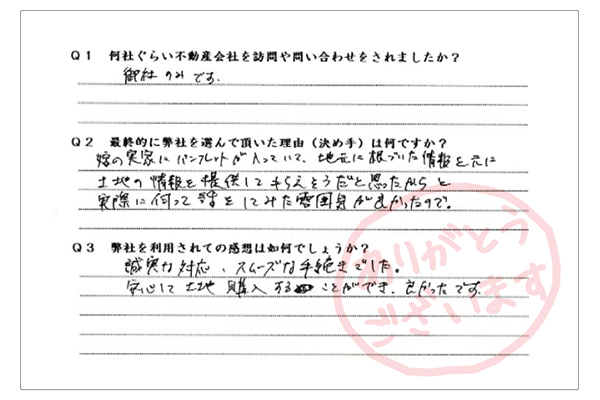 Q1 何社ぐらい不動産会社を訪問や問い合わせをされましたか？
御社のみです。
Q2 最終的に弊社を選んで頂いた理由（決め手）は何ですか？
嫁の実家にパンフレットが入っていて、地元に根づいた情報を元に
土地の情報を提供してもらえそうだと思ったからと
実際に伺って話をしてみた雰囲気が良かったので。
Q3 弊社を利用されての感想は如何でしょうか？
誠実な対応、スムーズな手続きでした。
安心して土地購入することができ、良かったです。
ありがとう
ございます